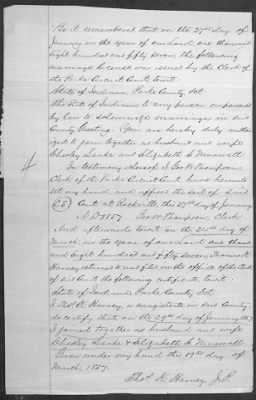 Be it remembered that on the 27th day of
January in the year of our Lord one thousand
eight hundred and fifty seven the following
marriage license was issued by the Clerk of
the Parke Circuit Court to wit:
State of Indiana Parke County Sct
The State of Indiana to any person empowered
by law to solemnize marriages in said
County Greeting. You are hereby duly author-
ized to join together as husband and wife
Chesley Leake and Elizabeth G. Maxwell
In testimony whereof I Geo W Thompson
Clerk of the Parke Circuit Court have hereunto
set my hand and affixed the seal of said
Court at Rockville this 27th day of January
A D 1857. Geo W Thompson, Clerk
And afterwards to wit on the 24th day of
March in the year of our Lord one thous-
and eight hundred and fifty seven Thomas K
Harvey returned to and filed in the office of the Clerk
of said Court the following certificate to wit
State of Indiana Parke County Sct.
I Thos K. Harvey, a magistrate in said County
do certify that on the 29th day of January 1857
I joined together as husband and wife
Chesley Leake & Elizabeth G Maxwell
Given under my hand this 19th day of
March, 1857.
Thos K. Harvey J.P.
4